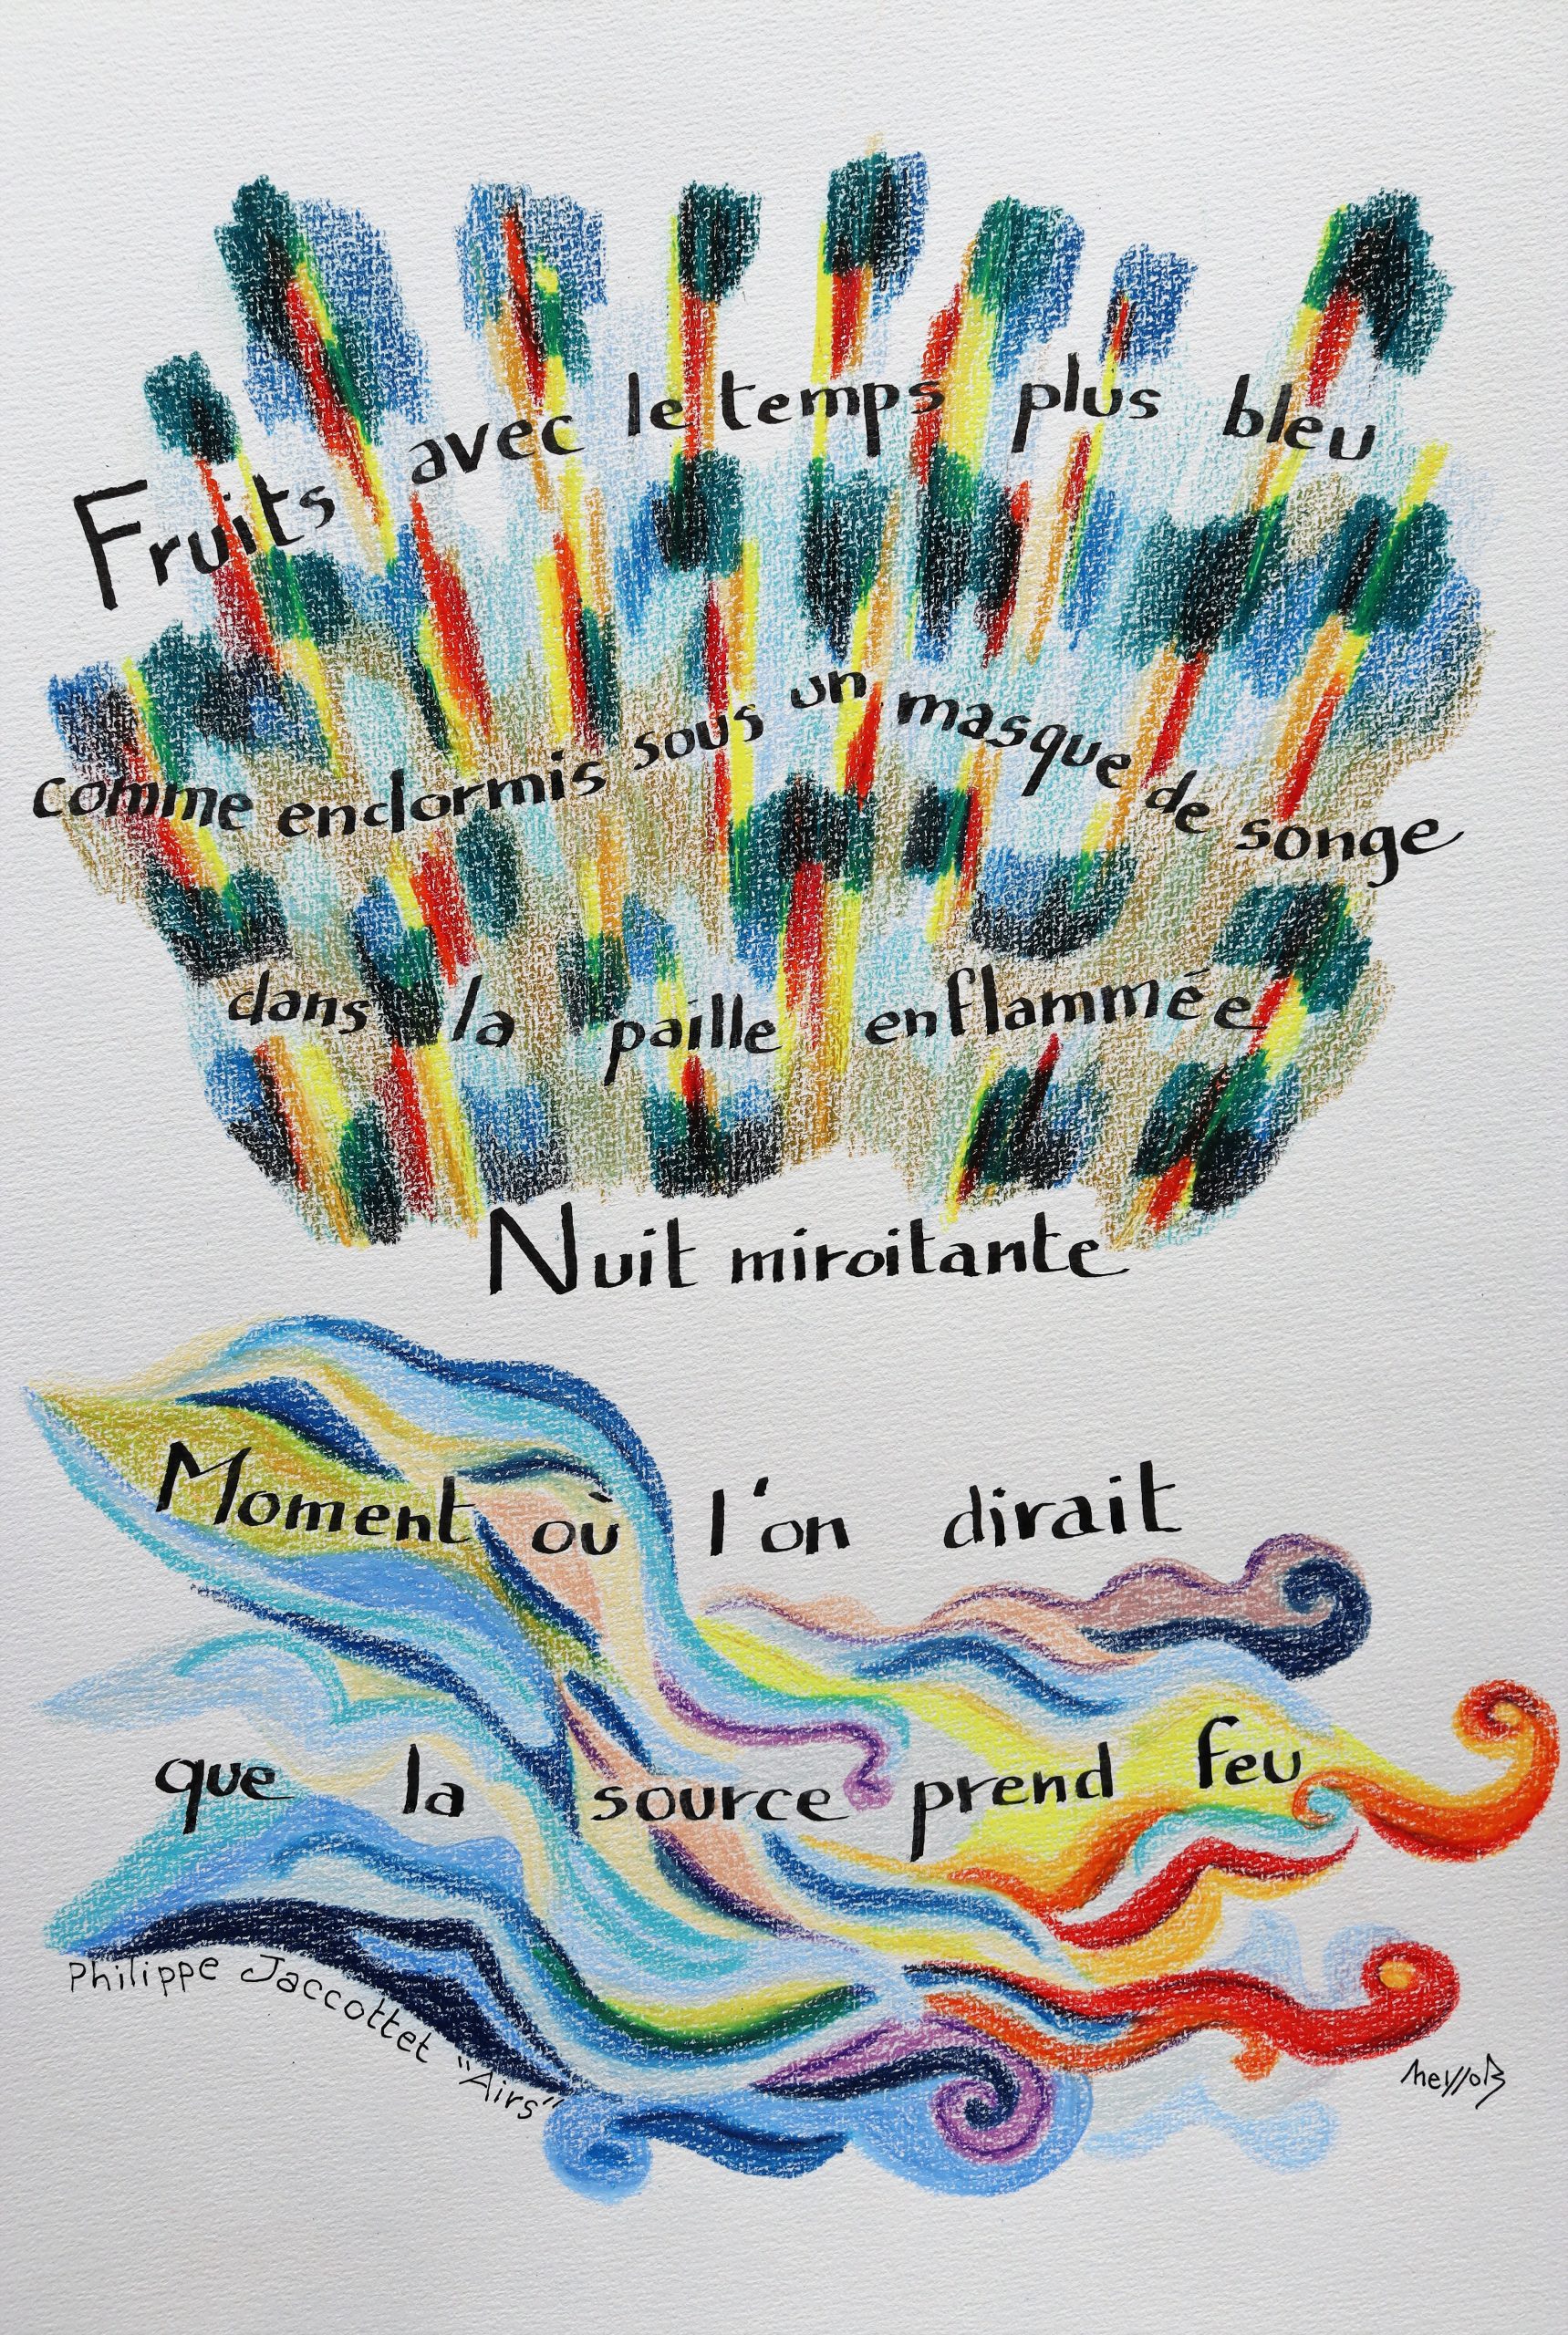 Fruits avec le temps plus bleu
comme endormis sous un masque de songe
dans la paille enflammée
Nuit miroitante
Moment où l'on dirait
que la source prend feu
Philippe Jaccottet "Airs"